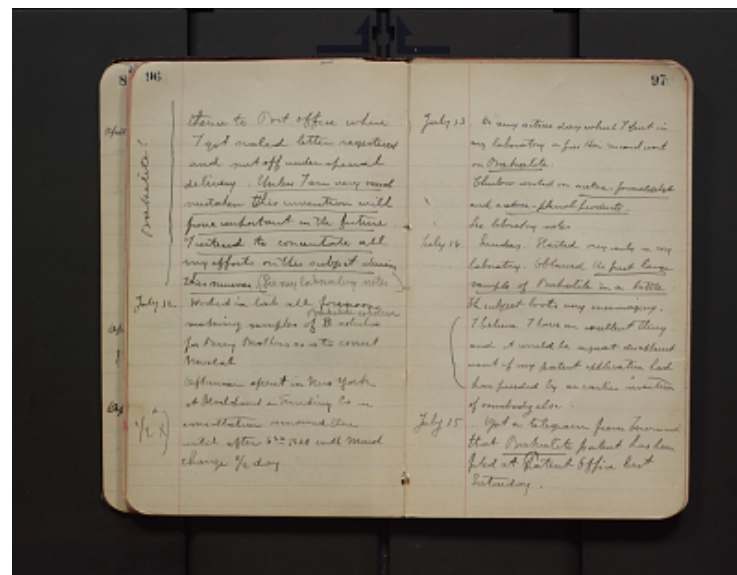 8
96
April
Bakelite!
thence to Post office where
I got sealed letter registered
and sent off under special
delivery. Unless I am very much
mistaken this invention will
prove important in the future
I intend to concentrate all
my efforts on this subject during
this summer. (See my laboratory notes)
July 12. Worked in lab all forenoon
Bakelite solution
making samples of B solution
for Berry Brothers as to correct
Afternoon spent in New York
at Development & Funding Co in
consultation remained there
until after 6 P.M. will
charge 1/2 day
1/2 X
97
July 13. A very active day which I spent in
my laboratory
on Bakelite.
Thurlow worked on acetone formaldehyde
and acetone-phenol products.
See laboratory notes
July 14. Sunday. Started very early in my
laboratory. Obtained the first large
sample of Bakelite in a bottle.
The subject looks very encouraging.
I believe I have an excellent thing
and it would be a great disappoint
ment if my patent application had
been preceded by an earlier invention
of somebody else.
July 15 Got a telegram from Townsend
that Bakelite patent has been
filed at Patent Office last
Saturday.